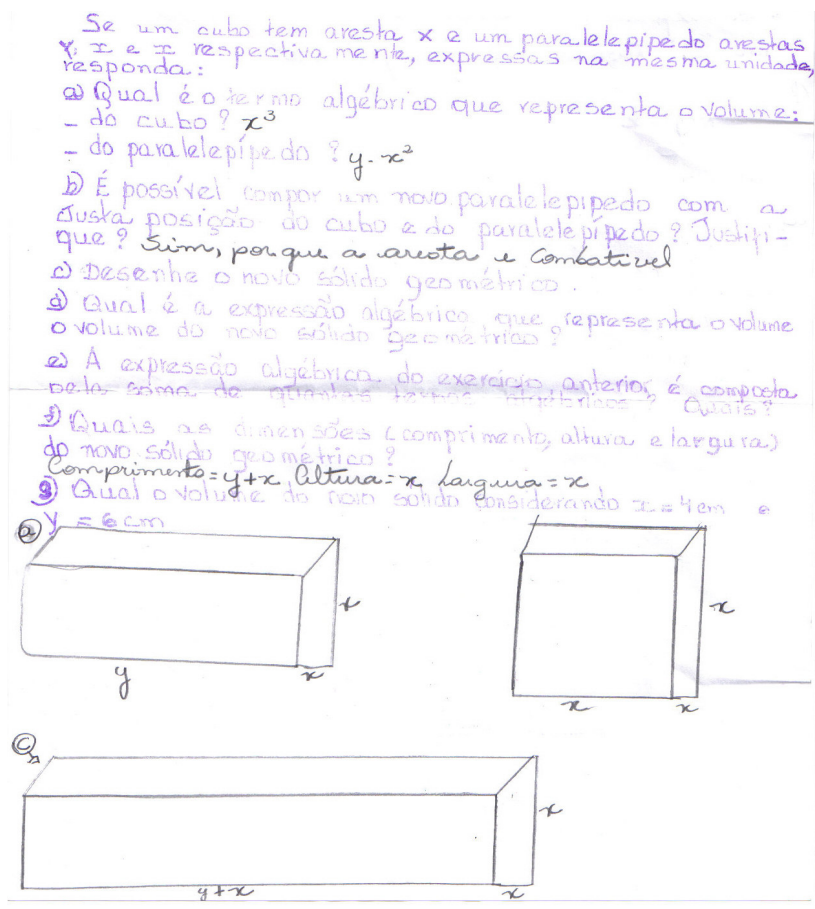 Se um cubo tem aresta x e um paralelepipedo arestas
Y; x e x respectiva mente, expressas na mesma unidade,
responda:
a) Qual é o termo algébrico que representa o volume:
- do cubo? x³
- do paralelepípedo? y.x²
b) É possível compor um novo paralelepipedo com a
Justa posição do cubo e do paralelepípedo? Justifi-
que? Sim, porque a aresta e combativel
c) Desenhe o novo sólido geométrico.
d) Qual é a expressão algébrica que representa o volume
o volume do novo sólido geométrico?
e) A expressão algébrica do exercício anterior, é composta
pela soma de quantos termos algébricos? Quais?
f) Quais as dimensões (comprimento, altura e largura)
do novo sólido geométrico?
Comprimento = y+x Altura = x Largura = x
g) Qual o volume do novo solido considerando x = 4cm e
Y = 6cm
a
x
y
x
x
x
x
c
x
y+x
x